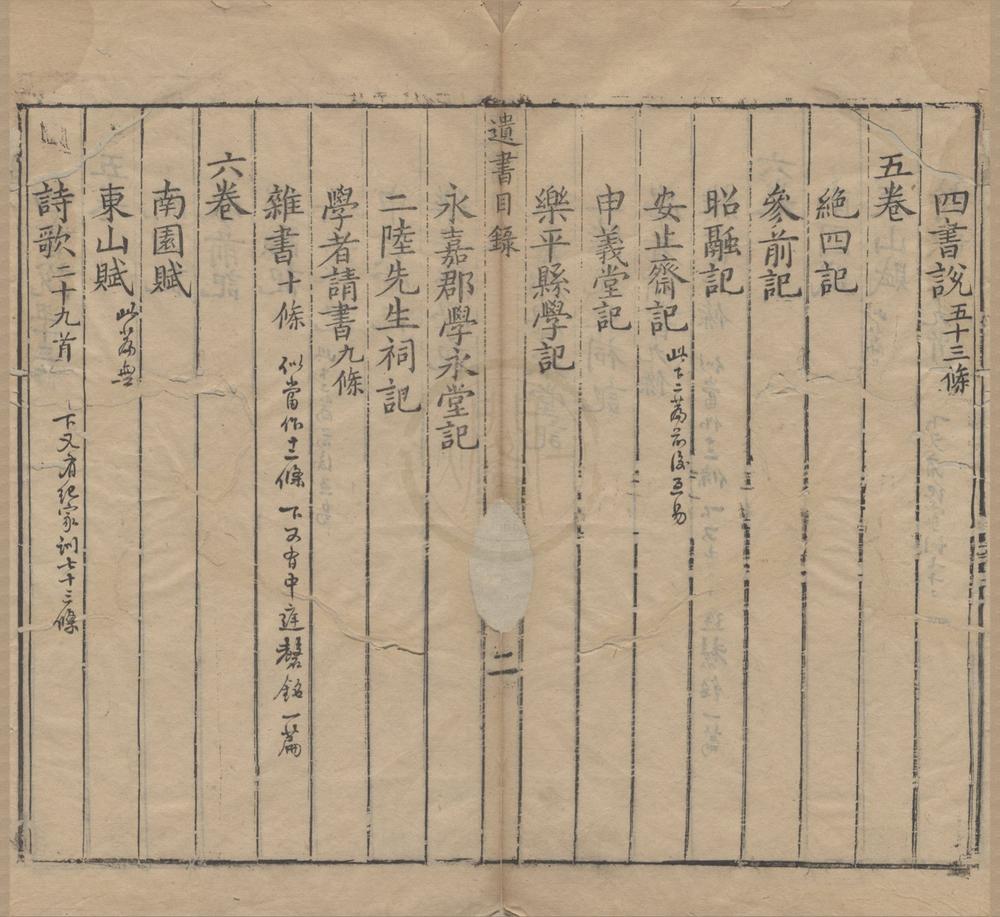 四書説五十三條
五卷
絶四記
參前記
昭融記
安止齋記 此下二篇前後互易
申義堂記
樂平縣學記
遺書目錄
二
永嘉郡學永堂記
二陸先生祠記
學者請書九條
雜書十條 似當作十一條 下又有中庭磬銘一篇
六卷
南園賦
東山賦 此篇無
詩歌二十九首 下又有紀家訓七十三條